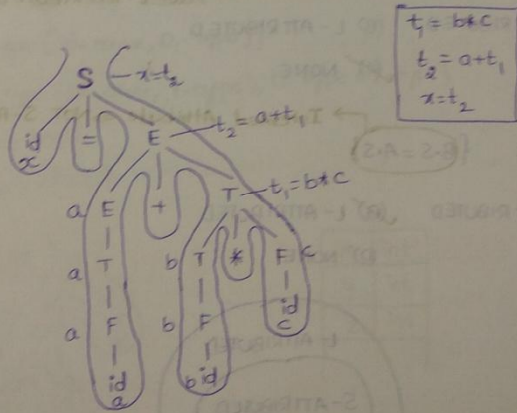 t₁ = b*c
t₂ = a+t₁
x=t₂
S — x=t₂
id = E — t₂ = a+t₁
x
a E + T — t₁ = b*c
a T b T * F c
a F b F id
c
id b id
a